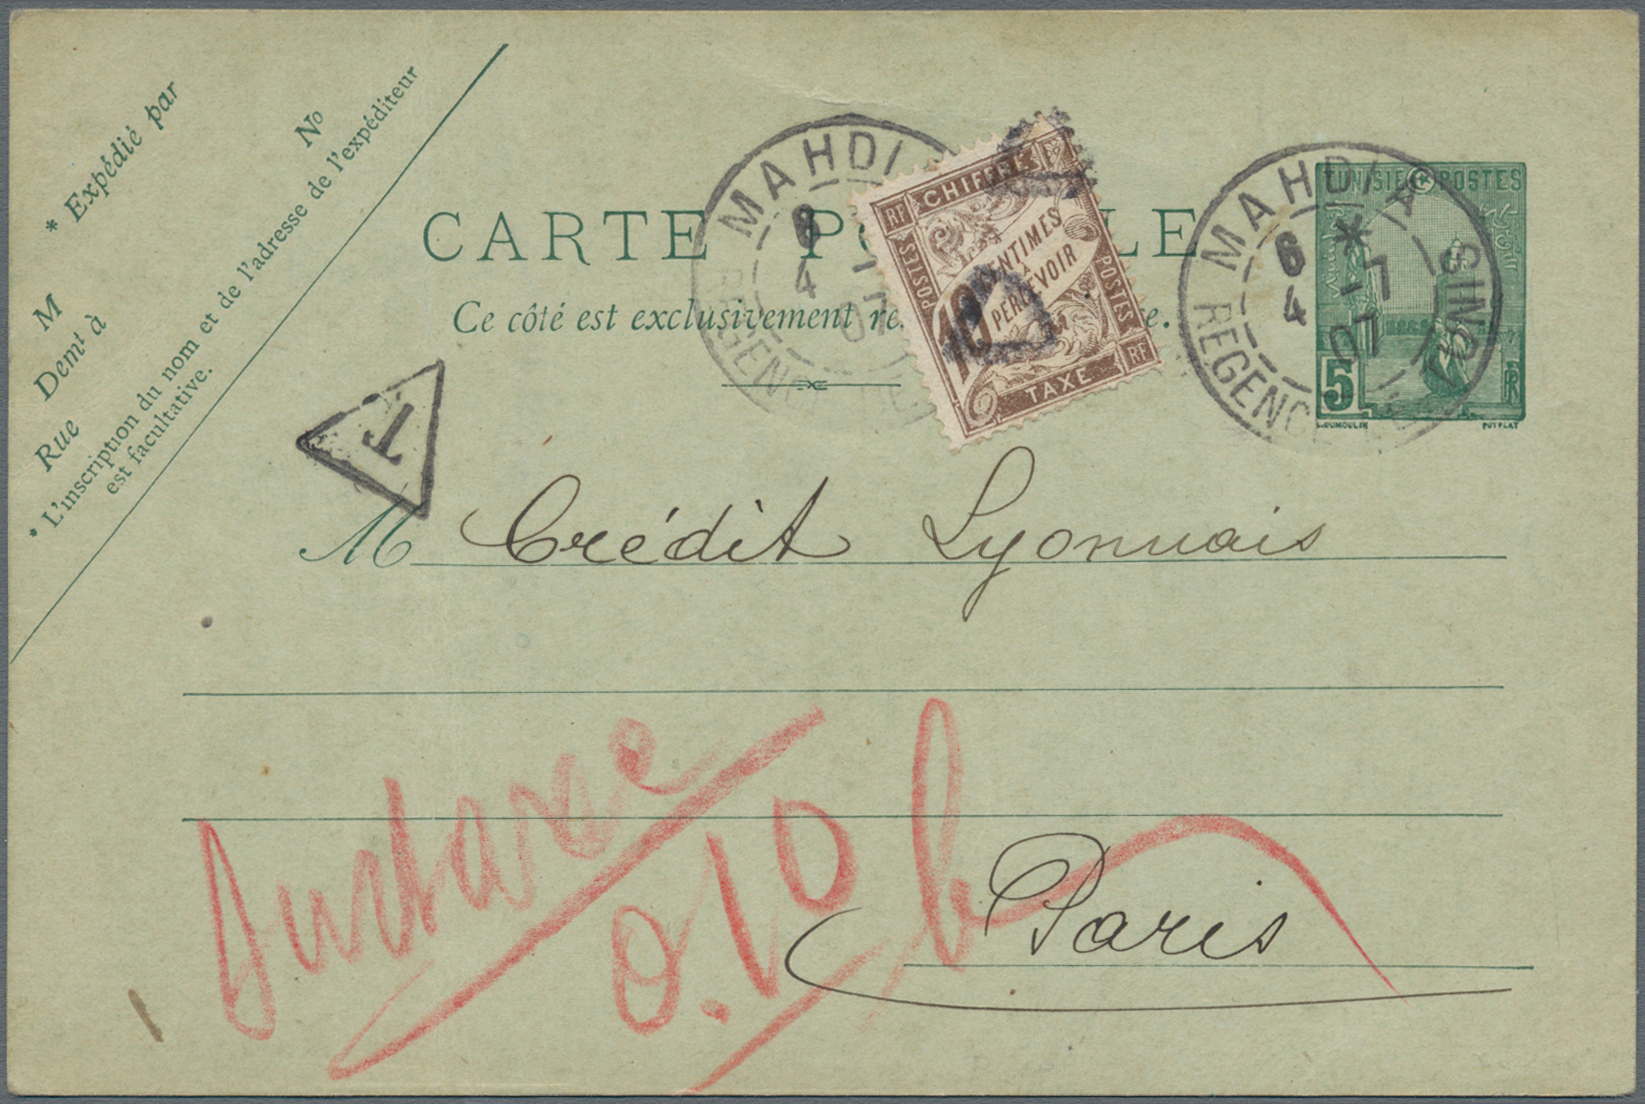 * Expédié par
No
M
Demt à
Rue
* L'inscription du nom et de l'adresse de l'expéditeur
est facultative.
CARTE P LE
Ce côté est exclusivement re e.
MAHDI
6
4 -
07
REGENC
CHIFFRE
RF
POSTES
10 CENTIMES
À
PERCEVOIR
POSTES
TAXE
RF
MAHDIA
6 *
4 -7
07
REGENC
TUNISIE POSTES
5
L.DUMOULIN
PUYPLAT
T
M Crédit Lyonnais
Surtaxe
0.10
Paris